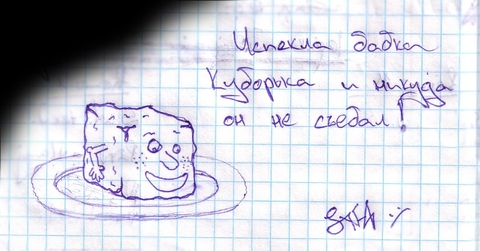 Испекла бабка
Куборыка и никуда
он не съебал!